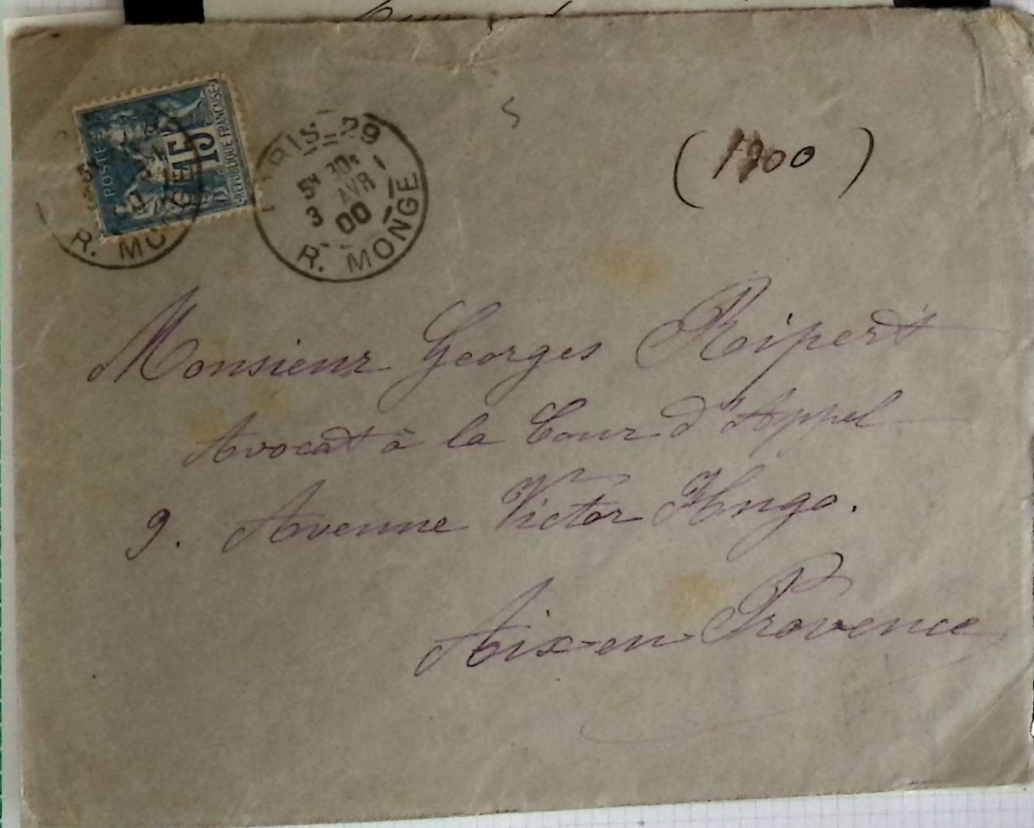 POSTES
15
RÉPUBLIQUE FRANÇAISE
R. MO
PARIS 29
5H 30M
3 AVR
00
R. MONGE
(1900)
Monsieur Georges Ripert
Avocat à la Cour d'Appel
9. Avenue Victor Hugo.
Aix-en-Provence